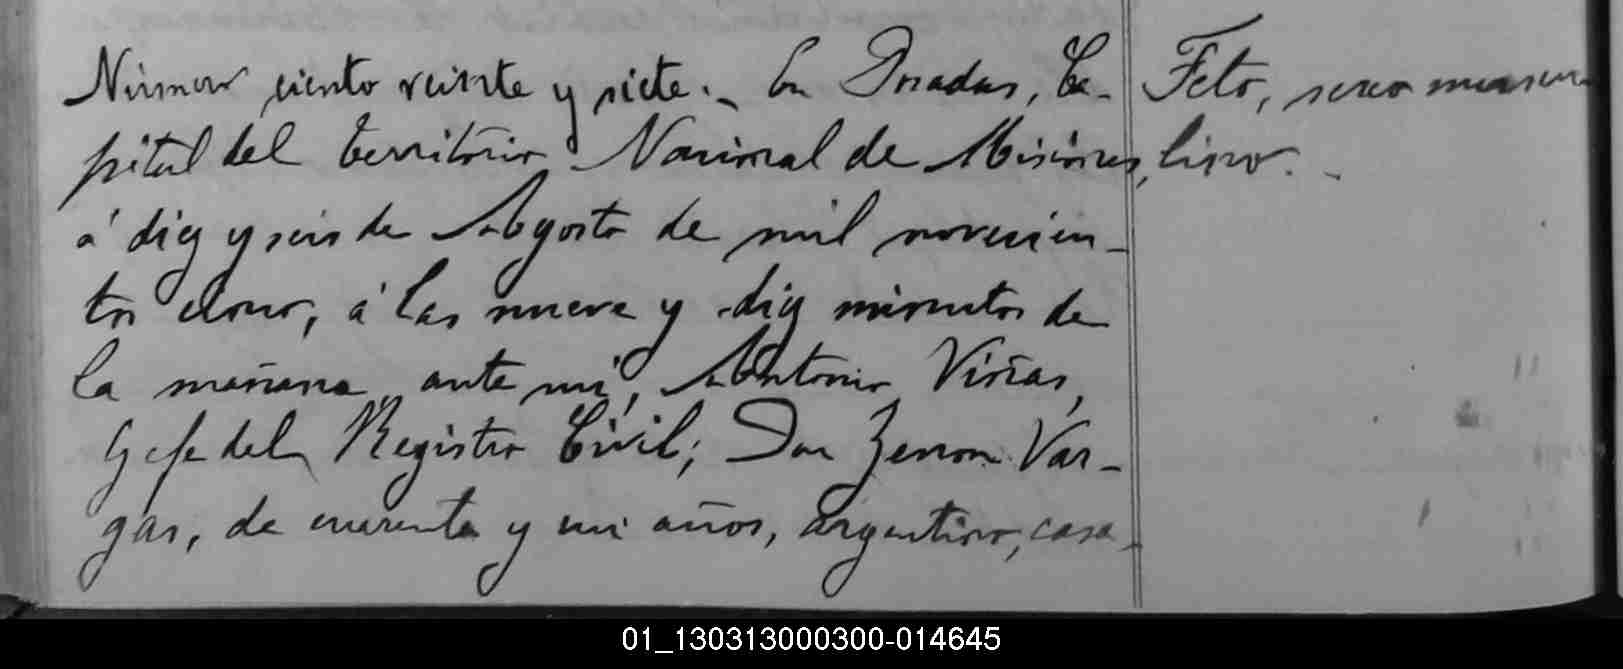 Número ciento veinte y siete._ En Posadas, Ca-
pital del Territorio Nacional de Misiones,
á diez y seis de Agosto de mil novecien-
tos once, á las nueve y diez minutos de
la mañana, ante mi, Antonio Viñas,
Gefe del Registro Civil; Don Zenon Var-
gas, de cuarenta y un años, argentino, casa-
Feto, sexo mascu
lino._
01_130313000300-014645